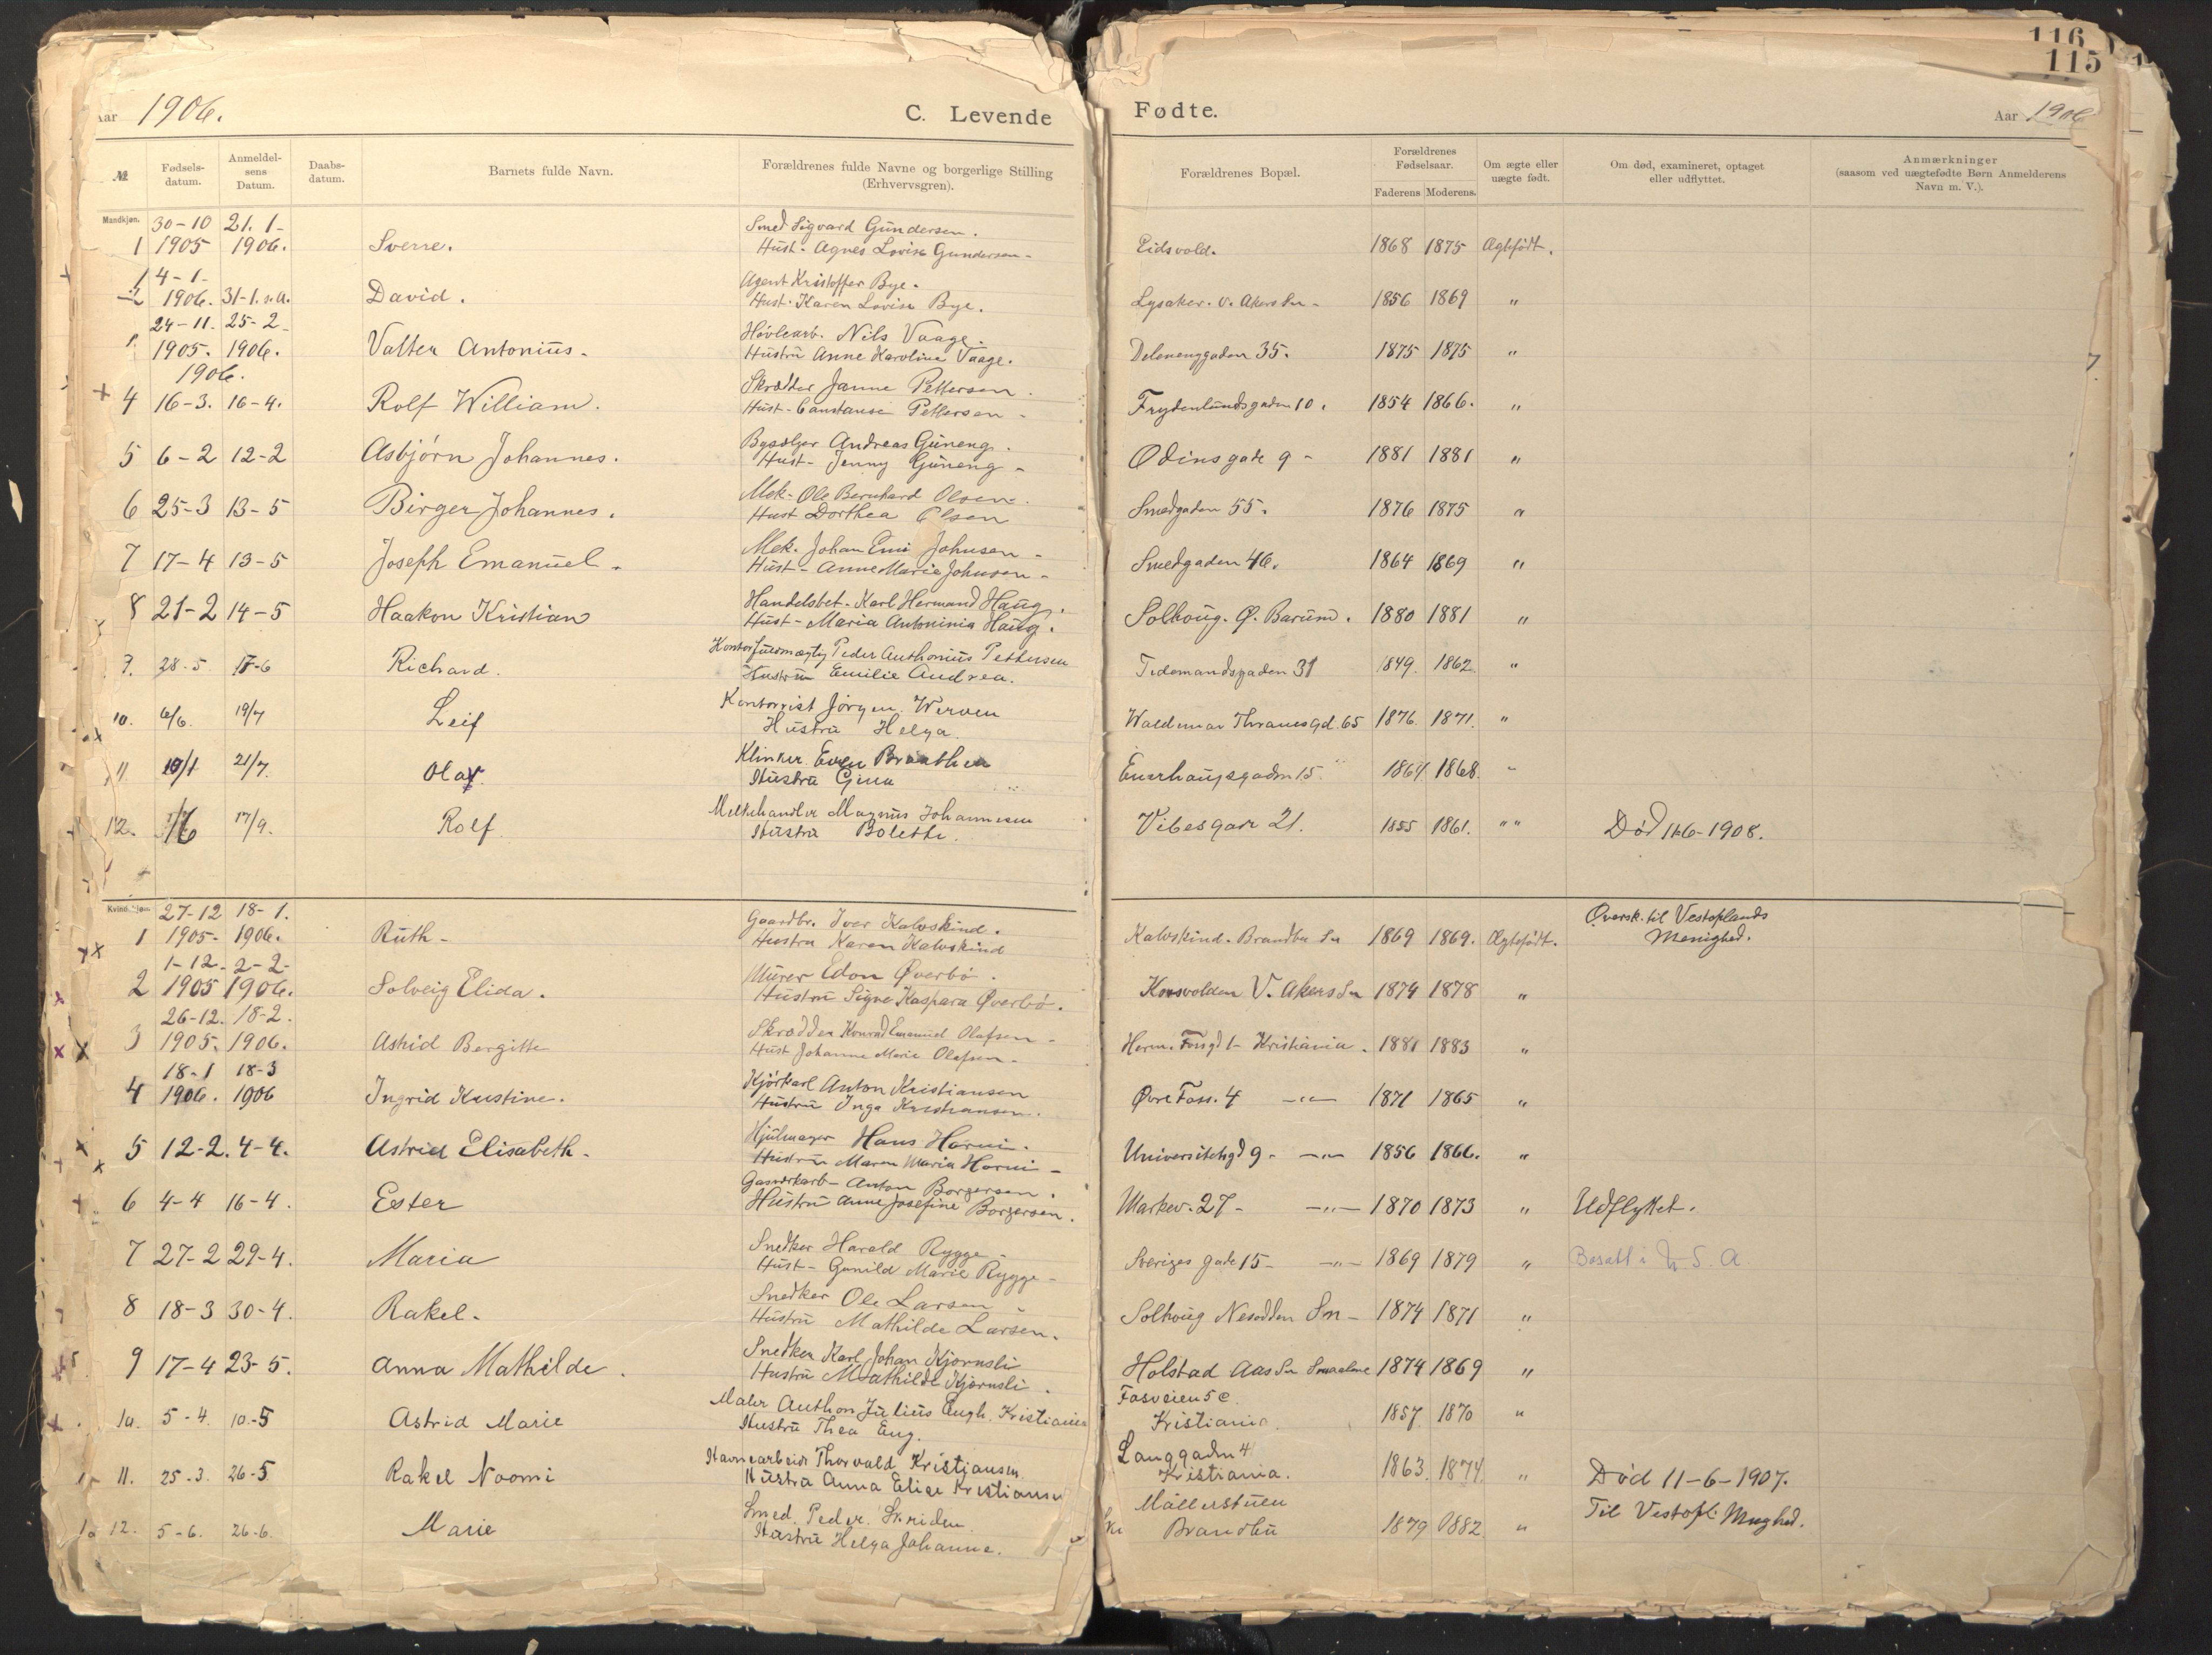 116
115
Aar 1906.
C. Levende Fødte.
Aar 1906
№
Fødsels-datum.
Anmeldel-sens Datum.
Daabs-datum.
Barnets fulde Navn.
Forældrenes fulde Navne og borgerlige Stilling (Erhvervsgren).
Forældrenes Bopæl.
Forældrenes Fødselsaar.
Faderens Moderens.
Om ægte eller uægte født.
Om død, examineret, optaget eller udflyttet.
Anmærkninger (saasom ved uægtefødte Børn Anmelderens Navn m. V.).
Mandkjøn.
30-10 21. 1- Smed Sigvard Gundersen.
1 1905 1906. Sverre. Hust- Agnes Lovise Gundersen- Eidsvold. 1868 1875 Ægtefødt.
14-1- Agent Kristoffer Bye.
2 1906. 31-1. s.a. David. Hust. Karen Lovise Bye. Lysaker. V. Akers Sn- 1856 1869 "
24-11. 25-2- Høvlearb. Nils Vaage.
1905. 1906. Valter Antonius- Hustru Anne Karoline Vaage. Delenenggaden 35. 1875 1875 "
1906. Skrædder Janne Pettersen.
4 16-3. 16-4. Rolf William. Hust- Constanse Pettersen- Frydenlundsgaden 10. 1854 1866. "
Andreas Guneng.
5 6-2 12-2 Asbjørn Johannes. Hust- Jenny Guneng- Odinsgade 9- 1881 1881 "
Mek- Ole Bernhard Olsen-
6 25-3 13-5 Birger Johannes. Hust Dorthea Olsen Smedgaden 55. 1876 1875 "
Mek. Johan Johnsen-
7 17-4 13-5 Joseph Emanuel. Hust- Anne Marie Johnsen- Smedgaden 46. 1864 1869 "
Handelsbet. Karl Hermand Haug.
8 21-2 14-5 Haakon Kristian Hust- Maria Antoninia Haug. Solhoug. Ø. Bærum. 1880 1881 "
Kontorfuldmægtig Peder Anthonius Pettersen
9. 28-5. 17-6 Richard. Hustru Emilie Andrea. Tidemandsgaden 31 1849. 1862 "
Kontorist Jørgen. Werven
10. 6/6. 19/7 Leif Hustru Helga. Waldemar Thranesgd. 65 1876. 1871. "
Klinker Even Braathen
11. 10/1 21/7. Olaf. Hustru Gina Enerhaugsgaden 15. 1864 1868 "
Melkehandler Magnus Johannesen
12. 1/6 17/9. Rolf Hustru Bolette. Vibesgade 21. 1855 1861. " " Død 11-6-1908.
Kvindekjøn.
27-12 18-1. Gaardbr. Iver Kalvskind. Oversk. til Vestoplands
1 1905- 1906. Ruth- Hustru Karen Kalvskind Kalvskind. Brandbu Sn 1869 1869. Ægtefødt. Menighed.
1-12- 2-2- Murer Edon Øverbø.
2 1905 1906. Solveig Elida. Hustru Signe Kaspara Øverbø. Korsvolden V. Akers Sn 1874 1878 "
26-12. 18-2. Skrædder Konrad Emanuel Olafsen-
3 1905. 1906. Astrid Bergitte Hust Johanne Marie Olafsen- Herm. Fossgd 1- Kristiania. 1881 1883 "
18-1 18-3 Kjørkarl Anton Kristiansen
4 1906. 1906 Ingrid Kristine. Hustru Inga Kristiansen. Øvre Foss. 4 -"- 1871 1865 "
Hjulmager Hans Horni.
5 12-2. 4-4. Astrid Elisabeth- Hustru Maren Maria Horni- Universitetsgd 9- -"- 1856 1866. "
Gasverkarb- Anton Borgersen.
6 4-4 16-4. Ester Hustru Anne Josefine Borgersen. Markev. 27- -"- 1870 1873 " Udflyttet.
Snedker Harald Rygge-
7 27-2 29-4. Maria Hust- Gunild Marie Rygge- Sveriges gade 15- -"- 1869 1879 " Bosatt i U. S. A.
Snedker Ole Larsen
8 18-3 30-4. Rakel- Hustru Mathilde Larsen. Solhoug Nesodden Sn- 1874 1871 "
Snedker Karl Johan Kjørnsli
9 17-4 23-5. Anna Mathilde. Hustru Mathilde Kjørnsli. Holstad Aas Sn Smaalene 1874 1869 "
Maler Anthon Julius Engh. Kristiania Fosveien 5c
10. 5-4. 10.-5 Astrid Marie Hustru Thea Eng. Kristiania. 1857. 1870 "
Havnearbeider Thorvald Kristiansen. Langgaden 4
11. 25-3. 26-5 Rakel Noomi Hustru Anna Elise Kristiansen Kristiania. 1863. 1874. " Død 11-6-1907.
Smed. Peder. Skriden Møllerstuen Til Vestopl: Meghed.
12. 5-6. 26-6. Marie Hustru Helga Johanne. Brandbu 1879 1882 "